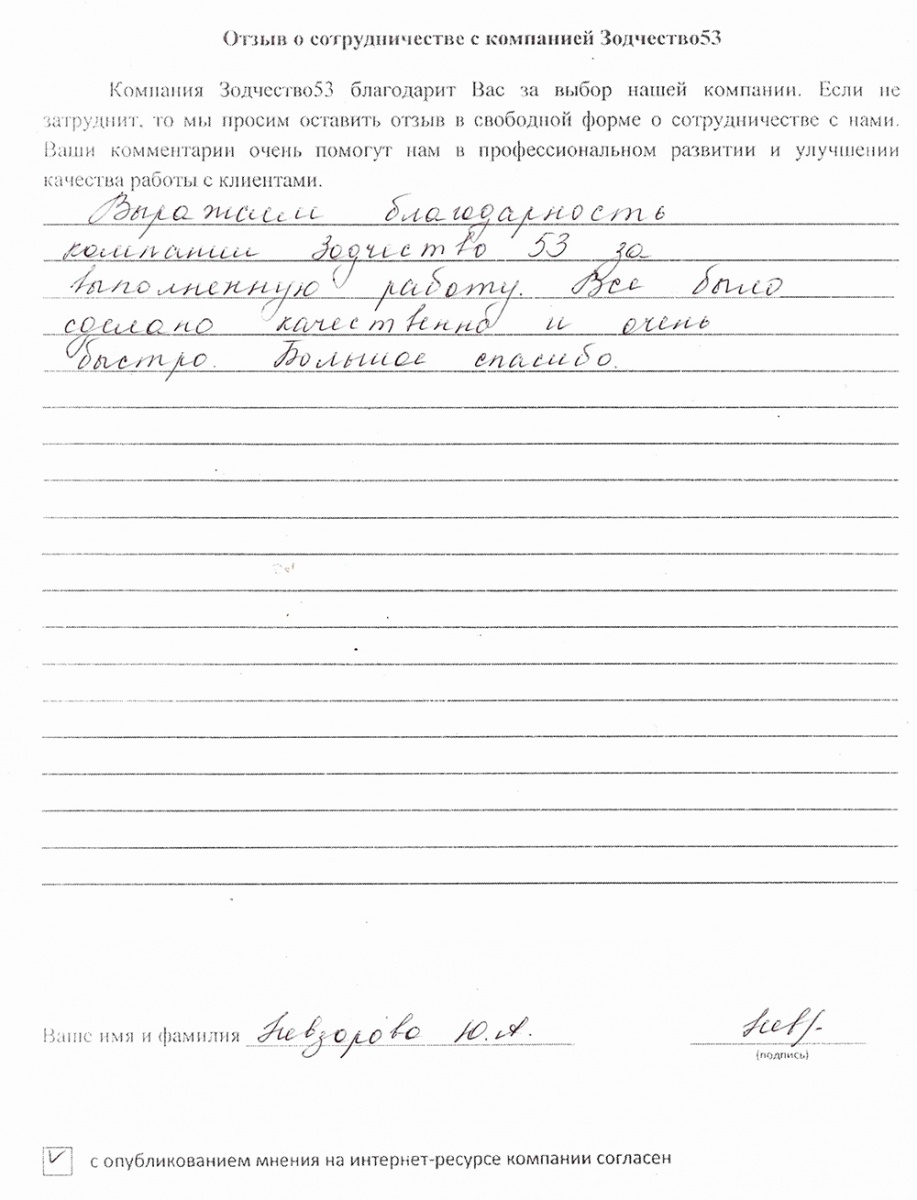 Отзыв о сотрудничестве с компанией Зодчество53
Компания Зодчество53 благодарит Вас за выбор нашей компании. Если не
затруднит, то мы просим оставить отзыв в свободной форме о сотрудничестве с нами.
Ваши комментарии очень помогут нам в профессиональном развитии и улучшении
качества работы с клиентами.
Выражаем благодарность
компании Зодчество 53 за
выполненную работу. Все было
сделано качественно и очень
быстро. Большое спасибо.
Ваше имя и фамилия Невзорова Ю.А.
(подпись)
с опубликованием мнения на интернет-ресурсе компании согласен